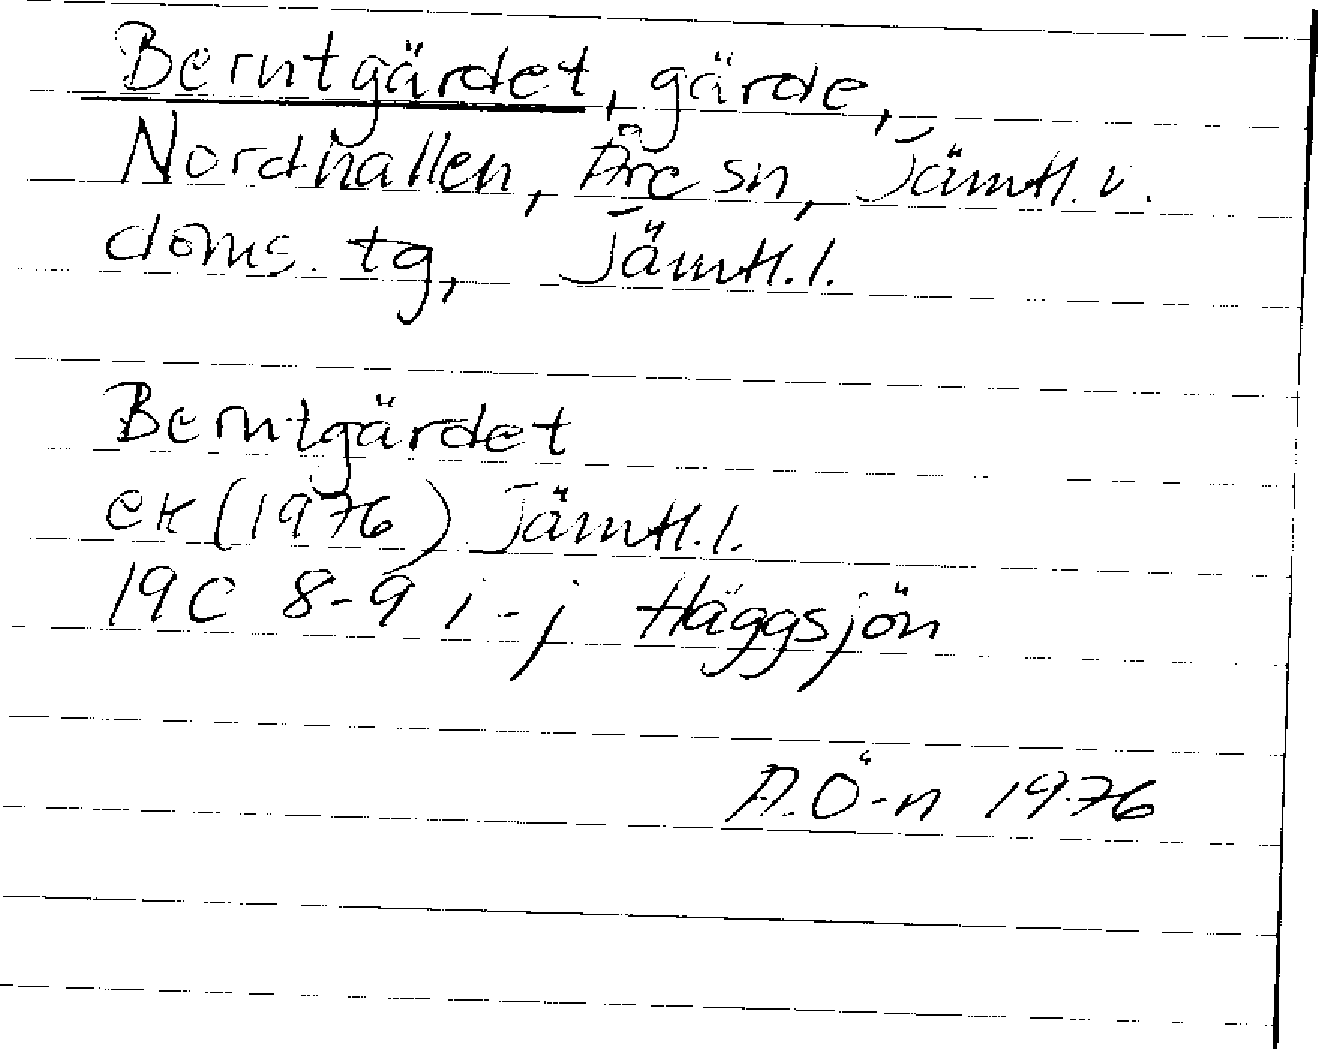 Berntgärdet, gärde,
Nordhallen, Åre sn, Jämtl. v.
doms. tg, Jämtl. l.
Berntgärdet
ek (1976) Jämtl. l.
19C 8-9 i-j Häggsjön
A.Ö-n 1976